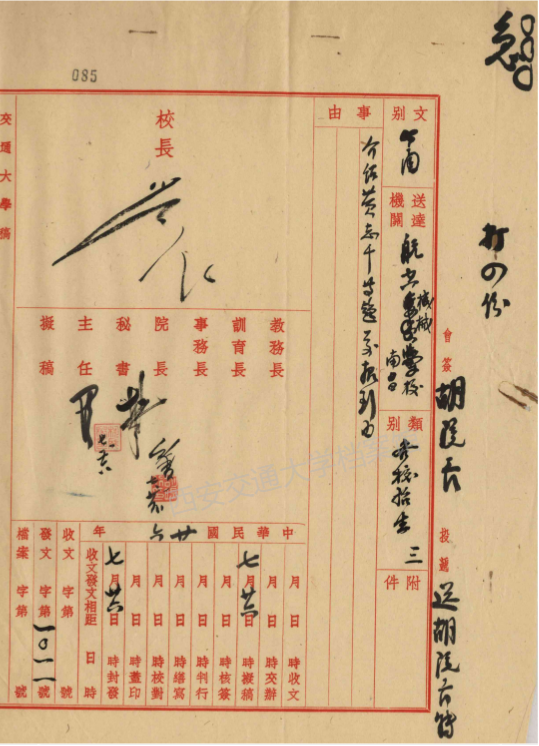 急
085
打四份
會簽 胡院長
投親 送胡院長簽
文別 函
送達機關 航空機械學校 南昌
類別 本校招生
附件 三
事由
介紹黃志千等題前報到由
校長
教務長
訓育長
事務長
院長
秘書
主任
擬稿
中華民國廿六年
月 日 時收文
月 日 時交辦
七月廿六日 時擬稿
月 日 時核簽
月 日 時判行
月 日 時繕寫
月 日 時校對
月 日 時蓋印
七月廿六日 時封發
收文發文相距 日 時
收文 字第 號
發文 字第 一〇一一 號
檔案 字第 號
交通大學稿
西安交通大學檔案館